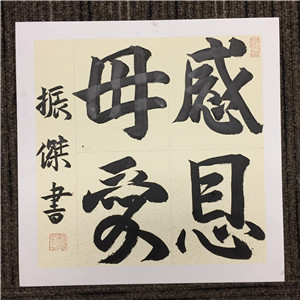 感恩
母愛
振傑書